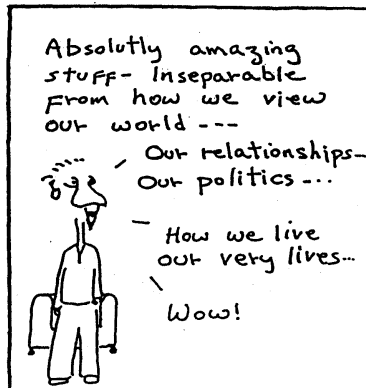 Absolutly amazing
stuff- Inseparable
From how we view
our world ---
Our relationships-
Our politics ...
How we live
our very lives...
Wow!